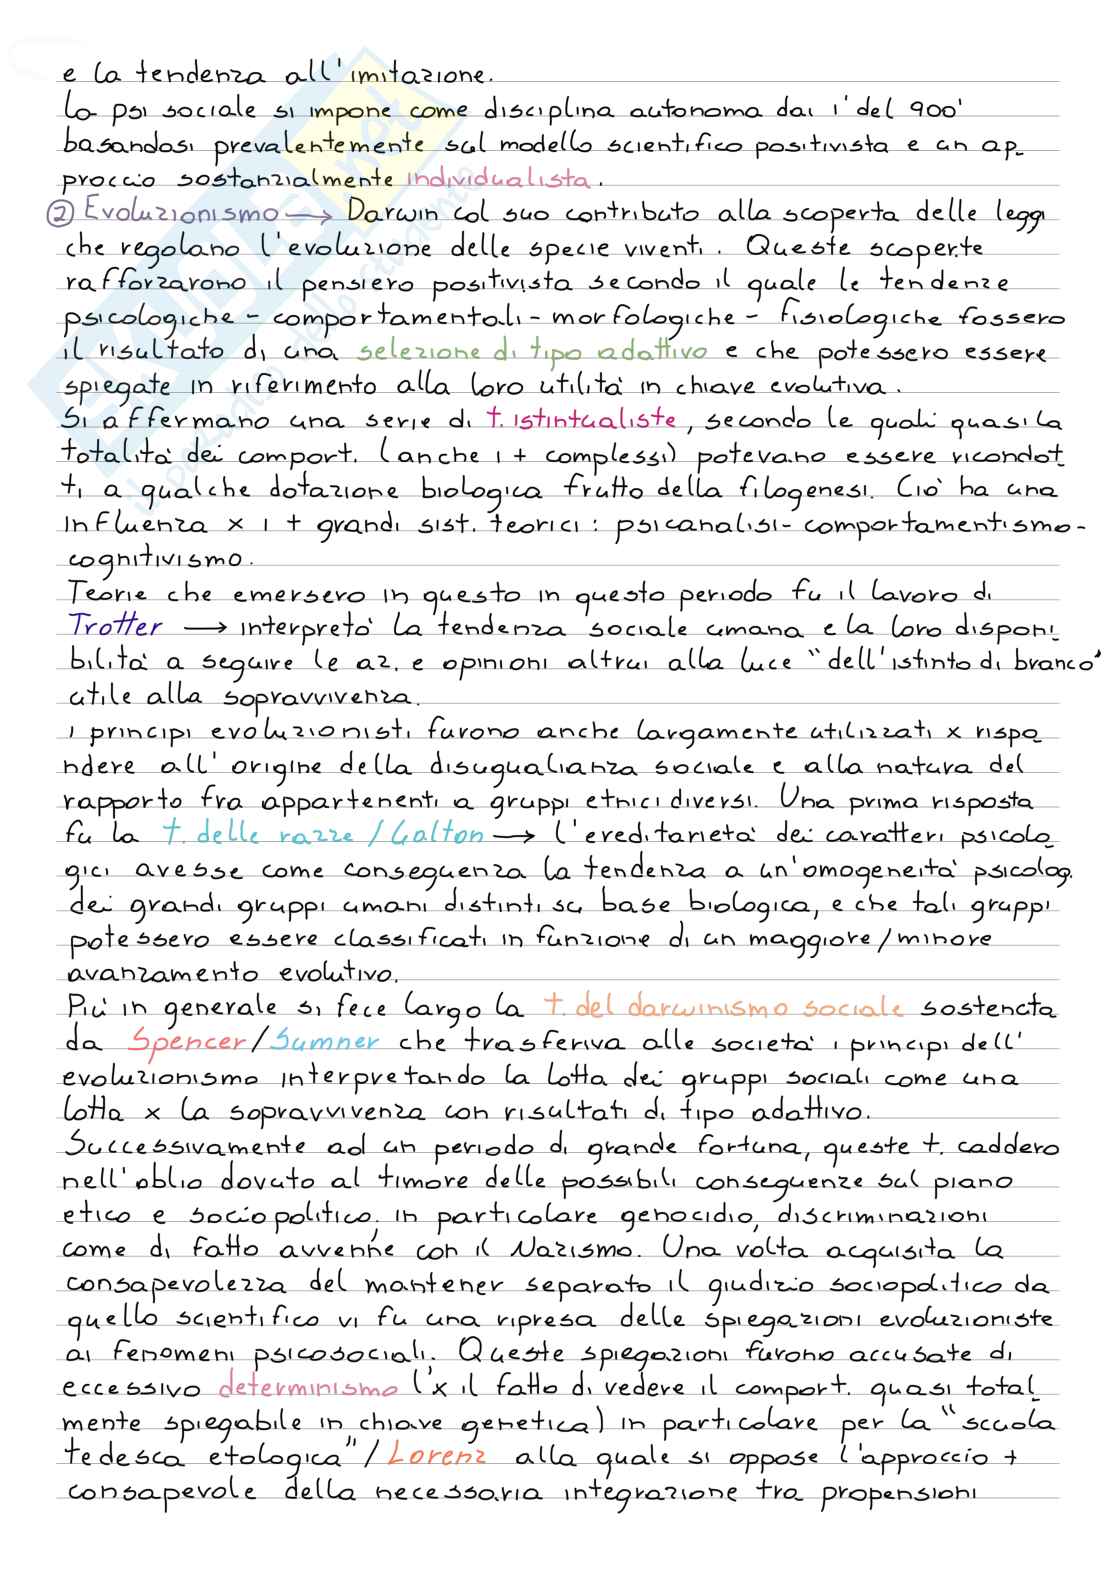 e la tendenza all'imitazione.
la psi sociale si impone come disciplina autonoma dai 1' del 900'
basandosi prevalentemente sul modello scientifico positivista e un ap-
proccio sostanzialmente individualista.
② Evoluzionismo → Darwin col suo contributo alla scoperta delle leggi
che regolano l'evoluzione delle specie viventi. Queste scoperte
rafforzarono il pensiero positivista secondo il quale le tendenze
psicologiche - comportamentali - morfologiche - fisiologiche fossero
il risultato di una selezione di tipo adattivo e che potessero essere
spiegate in riferimento alla loro utilità in chiave evolutiva.
Si affermano una serie di t. istintualiste, secondo le quali quasi la
totalità dei comport. (anche i + complessi) potevano essere ricondot-
ti a qualche dotazione biologica frutto della filogenesi. Ciò ha una
influenza x i + grandi sist. teorici: psicanalisi - comportamentismo -
cognitivismo.
Teorie che emersero in questo in questo periodo fu il lavoro di
Trotter → interpretò la tendenza sociale umana e la loro disponi-
bilità a seguire le az. e opinioni altrui alla luce "dell'istinto di branco"
utile alla sopravvivenza.
i principi evoluzionisti furono anche largamente utilizzati x rispo-
ndere all'origine della disugualianza sociale e alla natura del
rapporto fra appartenenti a gruppi etnici diversi. Una prima risposta
fu la t. delle razze / Galton → l'ereditarietà dei caratteri psicolo-
gici avesse come conseguenza la tendenza a un'omogeneità psicolog.
dei grandi gruppi umani distinti su base biologica, e che tali gruppi
potessero essere classificati in funzione di un maggiore/minore
avanzamento evolutivo.
Più in generale si fece largo la t. del darwinismo sociale sostenuta
da Spencer/Sumner che trasferiva alle società i principi dell'
evoluzionismo interpretando la lotta dei gruppi sociali come una
lotta x la sopravvivenza con risultati di tipo adattivo.
Successivamente ad un periodo di grande fortuna, queste t. caddero
nell'oblio dovuto al timore delle possibili conseguenze sul piano
etico e sociopolitico, in particolare genocidio, discriminazioni
come di fatto avvenne con il Nazismo. Una volta acquisita la
consapevolezza del mantener separato il giudizio sociopolitico da
quello scientifico vi fu una ripresa delle spiegazioni evoluzioniste
ai fenomeni psicosociali. Queste spiegazioni furono accusate di
eccessivo determinismo (x il fatto di vedere il comport. quasi total-
mente spiegabile in chiave genetica) in particolare per la "scuola
tedesca etologica" / Lorenz alla quale si oppose l'approccio +
consapevole della necessaria integrazione tra propensioni